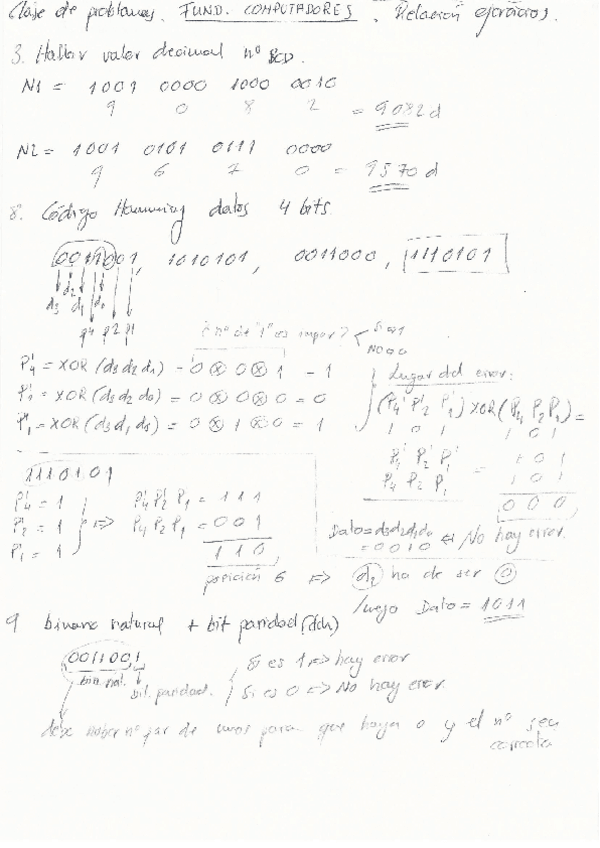 Clase de problemas. FUND. COMPUTADORES. Relación ejercicios.
3. Hallar valor decimal nº BCD.
N1 = 1001 0000 1000 0010
9 0 8 2 = 9082d
N2 = 1001 0101 0111 0000
9 6 7 0 = 9570d
8. Código Hamming datos 4 bits
0011001, 1010101, 0011000, 1110101
d3 d2 d1 d0
P4 P2 P1
¿nº de "1" es impar?
P'4 = XOR(d3d2d1) - 0⊗0⊗1 - 1
P'2 = XOR(d3d2d0) = 0⊗0⊗0 = 0
P'1 = XOR(d3d1d0) = 0⊗1⊗0 = 1
Lugar del error:
(P'4 P'2 P'1) XOR (P4 P2 P1) =
1 0 1 1 0 1
P'2 P'1 = 1 0 1
P4 P2 P1 1 0 1
0 0 0
Dato = d3d2d1d0
= 0010 No hay error.
1110101
P'4 = 1
P'2 = 1
P'1 = 1
=> P'4 P'2 P1 = 111
P4 P2 P1 = 001
110
posición 6 => d2 ha de ser 0
luego Dato = 1011
9 binario natural + bit paridad (dch)
0011001
bin nat. bit paridad.
Si es 1 => hay error
Si es 0 => No hay error.
debe haber nº par de unos para que haya 0 y el nº sea
correcto